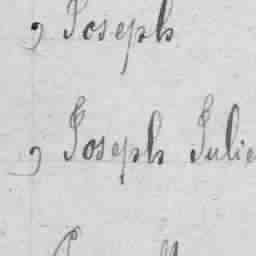 , Joseph
, Joseph Julie